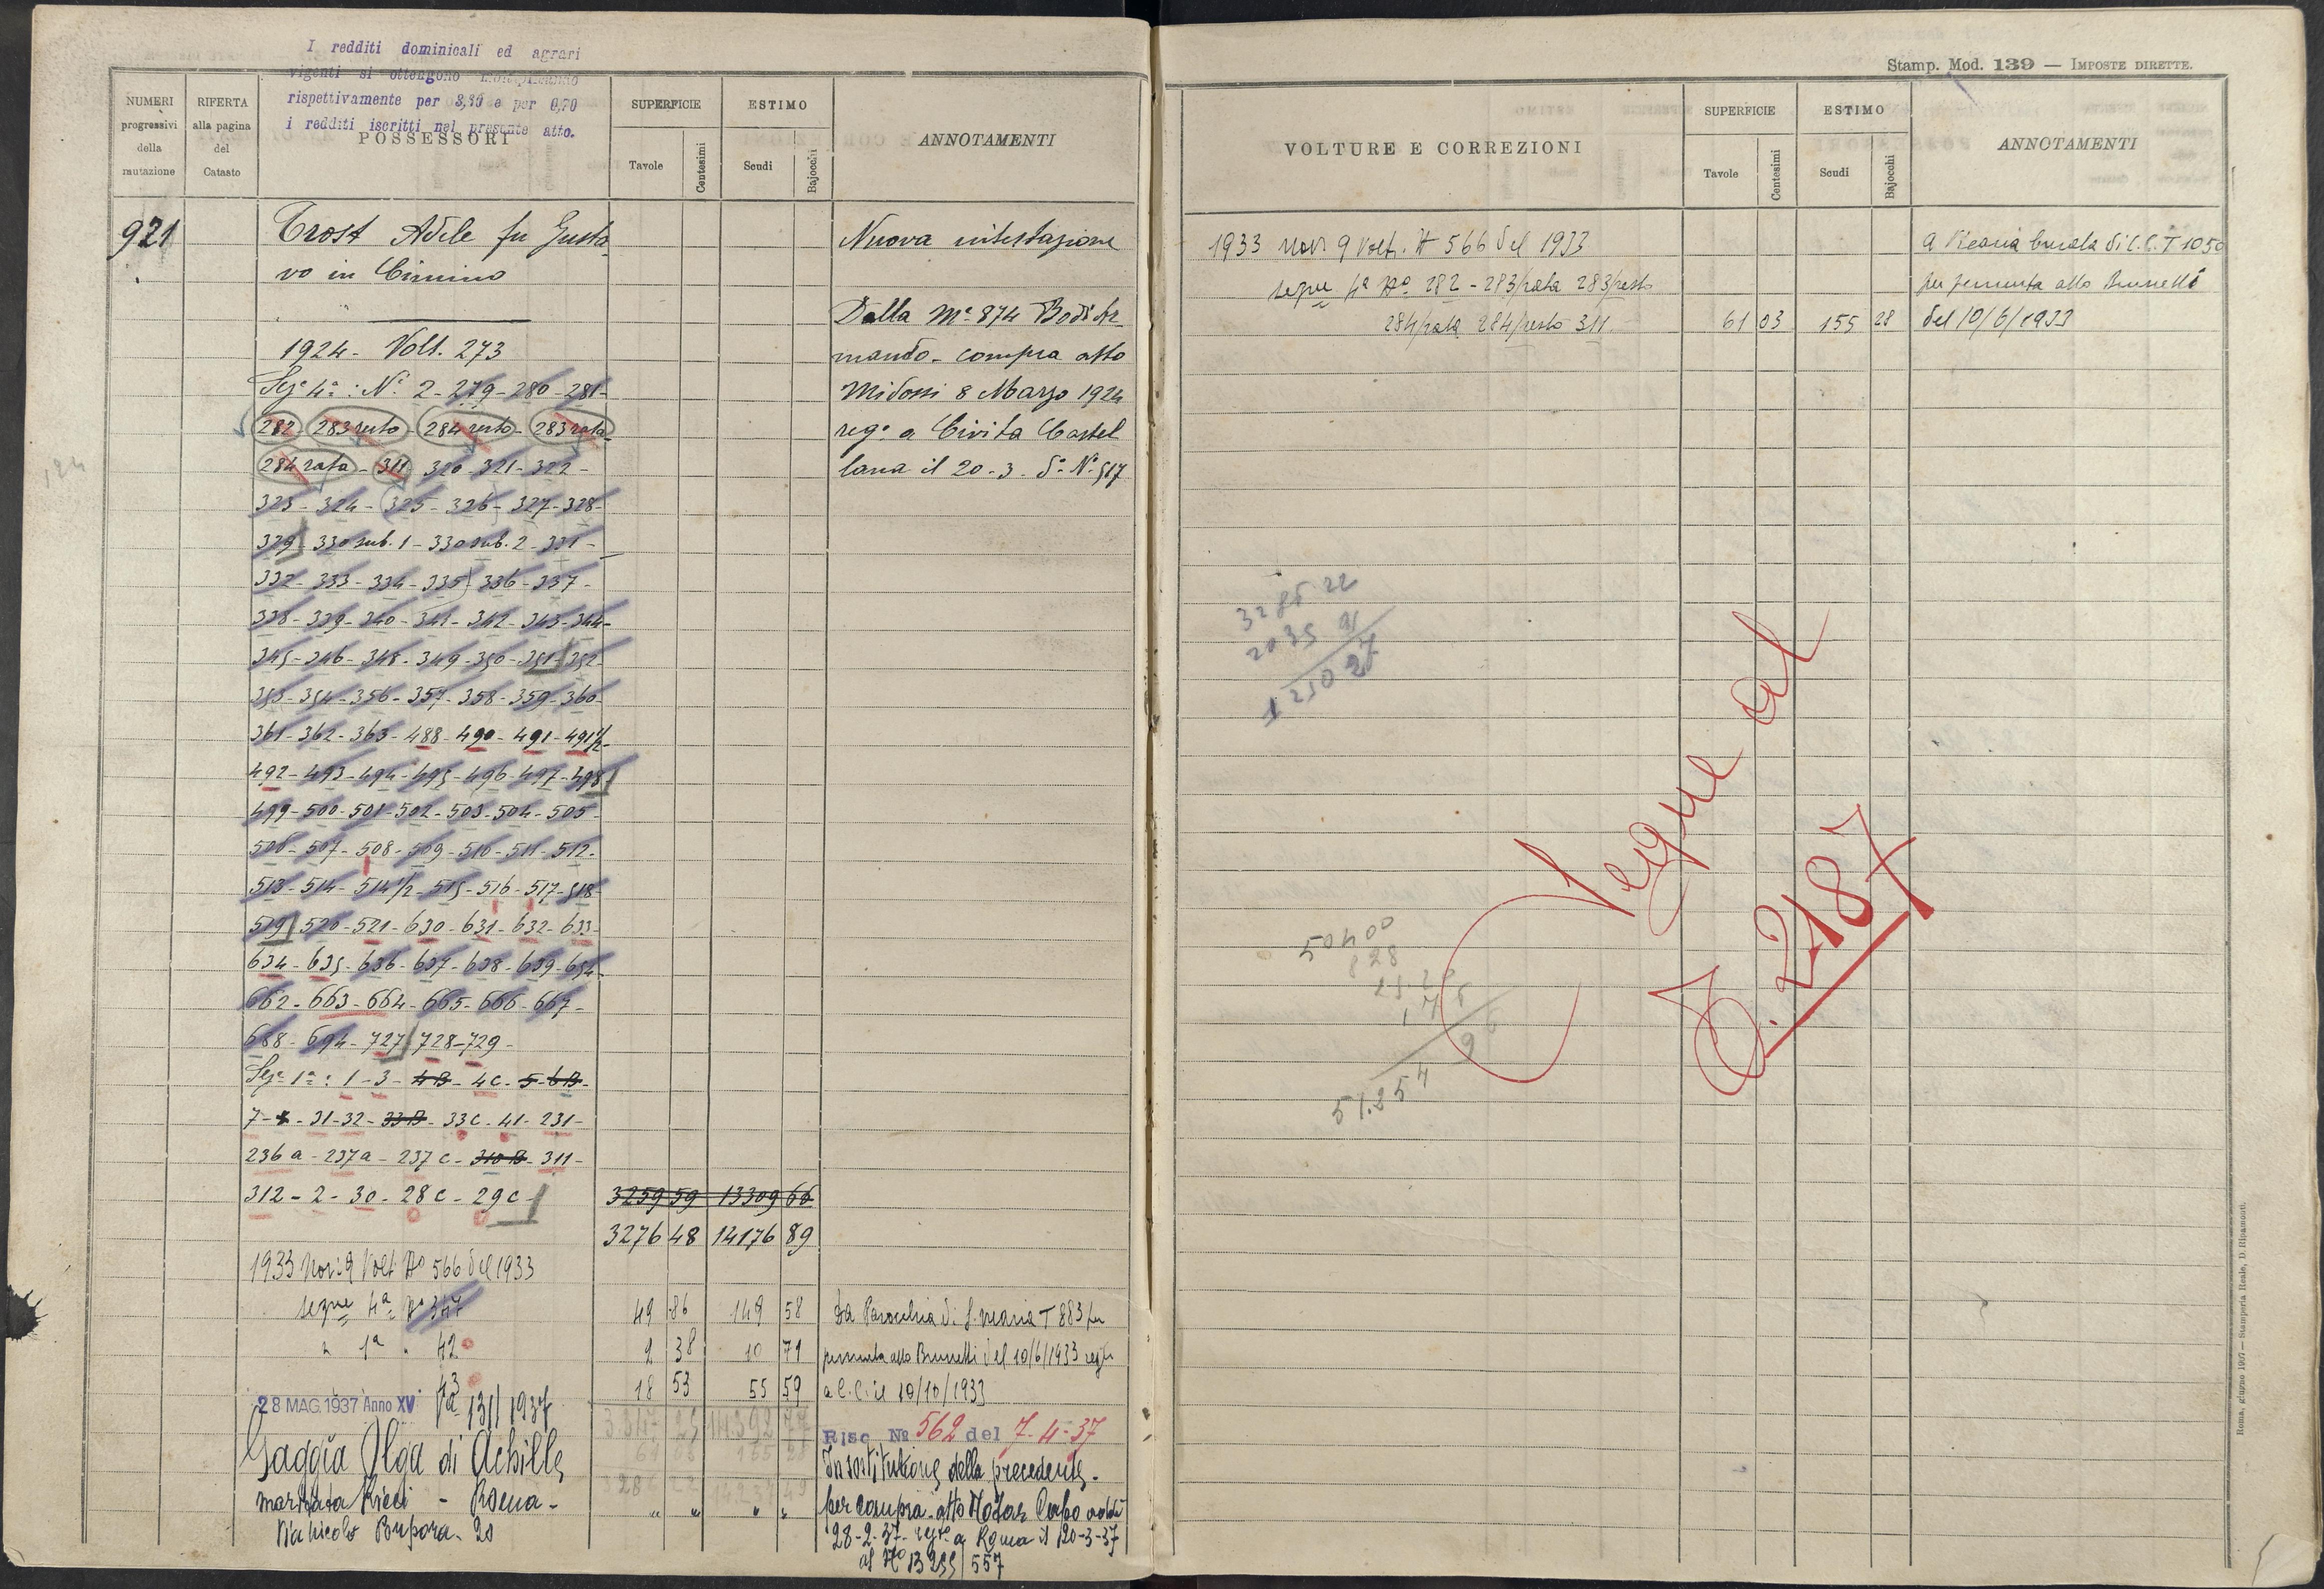 I redditi dominicali ed agrari
vigenti si ottengono moltiplicando
rispettivamente per 3,80 e per 0,70
i redditi iscritti nel presente atto.
NUMERI progressivi della mutazione
RIFERTA alla pagina del Catasto
POSSESSORI
SUPERFICIE
Tavole
Centesimi
ESTIMO
Scudi
Bajocchi
ANNOTAMENTI
921
Trost Adele fu Gusta
vo in Cimino
1924 - Volt. 273
Sez.e 4a: No 2 - 279 - 280 - 281 -
282 - 283 resto - 284 resto - 283 rata
284 rata - 311 - 320 - 321 - 322 -
323 - 324 - 325 - 326 - 327 - 328 -
329 - 330 sub. 1 - 330 sub. 2 - 331 -
332 - 333 - 334 - 335 - 336 - 337 -
338 - 339 - 340 - 341 - 342 - 343 - 344 -
345 - 346 - 348 - 349 - 350 - 351 - 352 -
353 - 354 - 356 - 357 - 358 - 359 - 360 -
361 - 362 - 363 - 488 - 490 - 491 - 491 1/2 -
492 - 493 - 494 - 495 - 496 - 497 - 498 -
499 - 500 - 501 - 502 - 503 - 504 - 505 -
506 - 507 - 508 - 509 - 510 - 511 - 512 -
513 - 514 - 514 1/2 - 515 - 516 - 517 - 518 -
519 - 520 - 521 - 630 - 631 - 632 - 633 -
634 - 635 - 636 - 637 - 638 - 639 - 654 -
662 - 663 - 664 - 665 - 666 - 667 -
688 - 694 - 727 - 728 - 729 -
Sez.e 1a: 1 - 3 - 4B - 4c - 5 - 6B -
7 - 31 - 32 - 33B - 33c - 41 - 231 -
236 a - 237 a - 237 c - 310 B - 311 -
312 - 2 - 30 - 28 c - 29 c -
3259 59 13309 66
3276 48 14176 89
1933 Nov. 9 Volt No 566 del 1933
sezne 4a No 347 49 86 149 58
" 1a " 42 2 38 10 71
43 18 53 55 59
28 MAG. 1937 Anno XV
Va 131/1937
Gaggia Olga di Achille
maritata Ricci - Roma -
Via Nicolo Porpora - 20
Nuova intestazione
Dalla Ma 874 Bodi Ar-
mando - compra atto
Midossi 8 Marzo 1924
rego a Civita Castel
lana il 20 - 3 - do No 517
Da Parocchia di S. Maria T 883 per
permuta atto Brunelli del 10/6/1933 regto
a C. C. il 10/10/1933
Risc No 562 del 7-4-37
In sostituzione della precedente -
per compra - atto Notar
28-2-37 - regto a Roma il 20-3-37
al No 13255/557
Stamp. Mod. 139 — IMPOSTE DIRETTE.
VOLTURE E CORREZIONI
SUPERFICIE
Tavole
Centesimi
ESTIMO
Scudi
Bajocchi
ANNOTAMENTI
1933 nov. 9 Volt. N 566 del 1933
sezne 4a No 282 - 283/rata 283/resto
284/rata 284/resto 311 61 03 155 28
a Vicaria Curata di C. C. T 1050
per permuta atto Brunelli
del 10/6/1933
50400
828
Segue al
T. 2187
Roma, giugno 1907 — Stamperia Reale, D. Ripamonti.